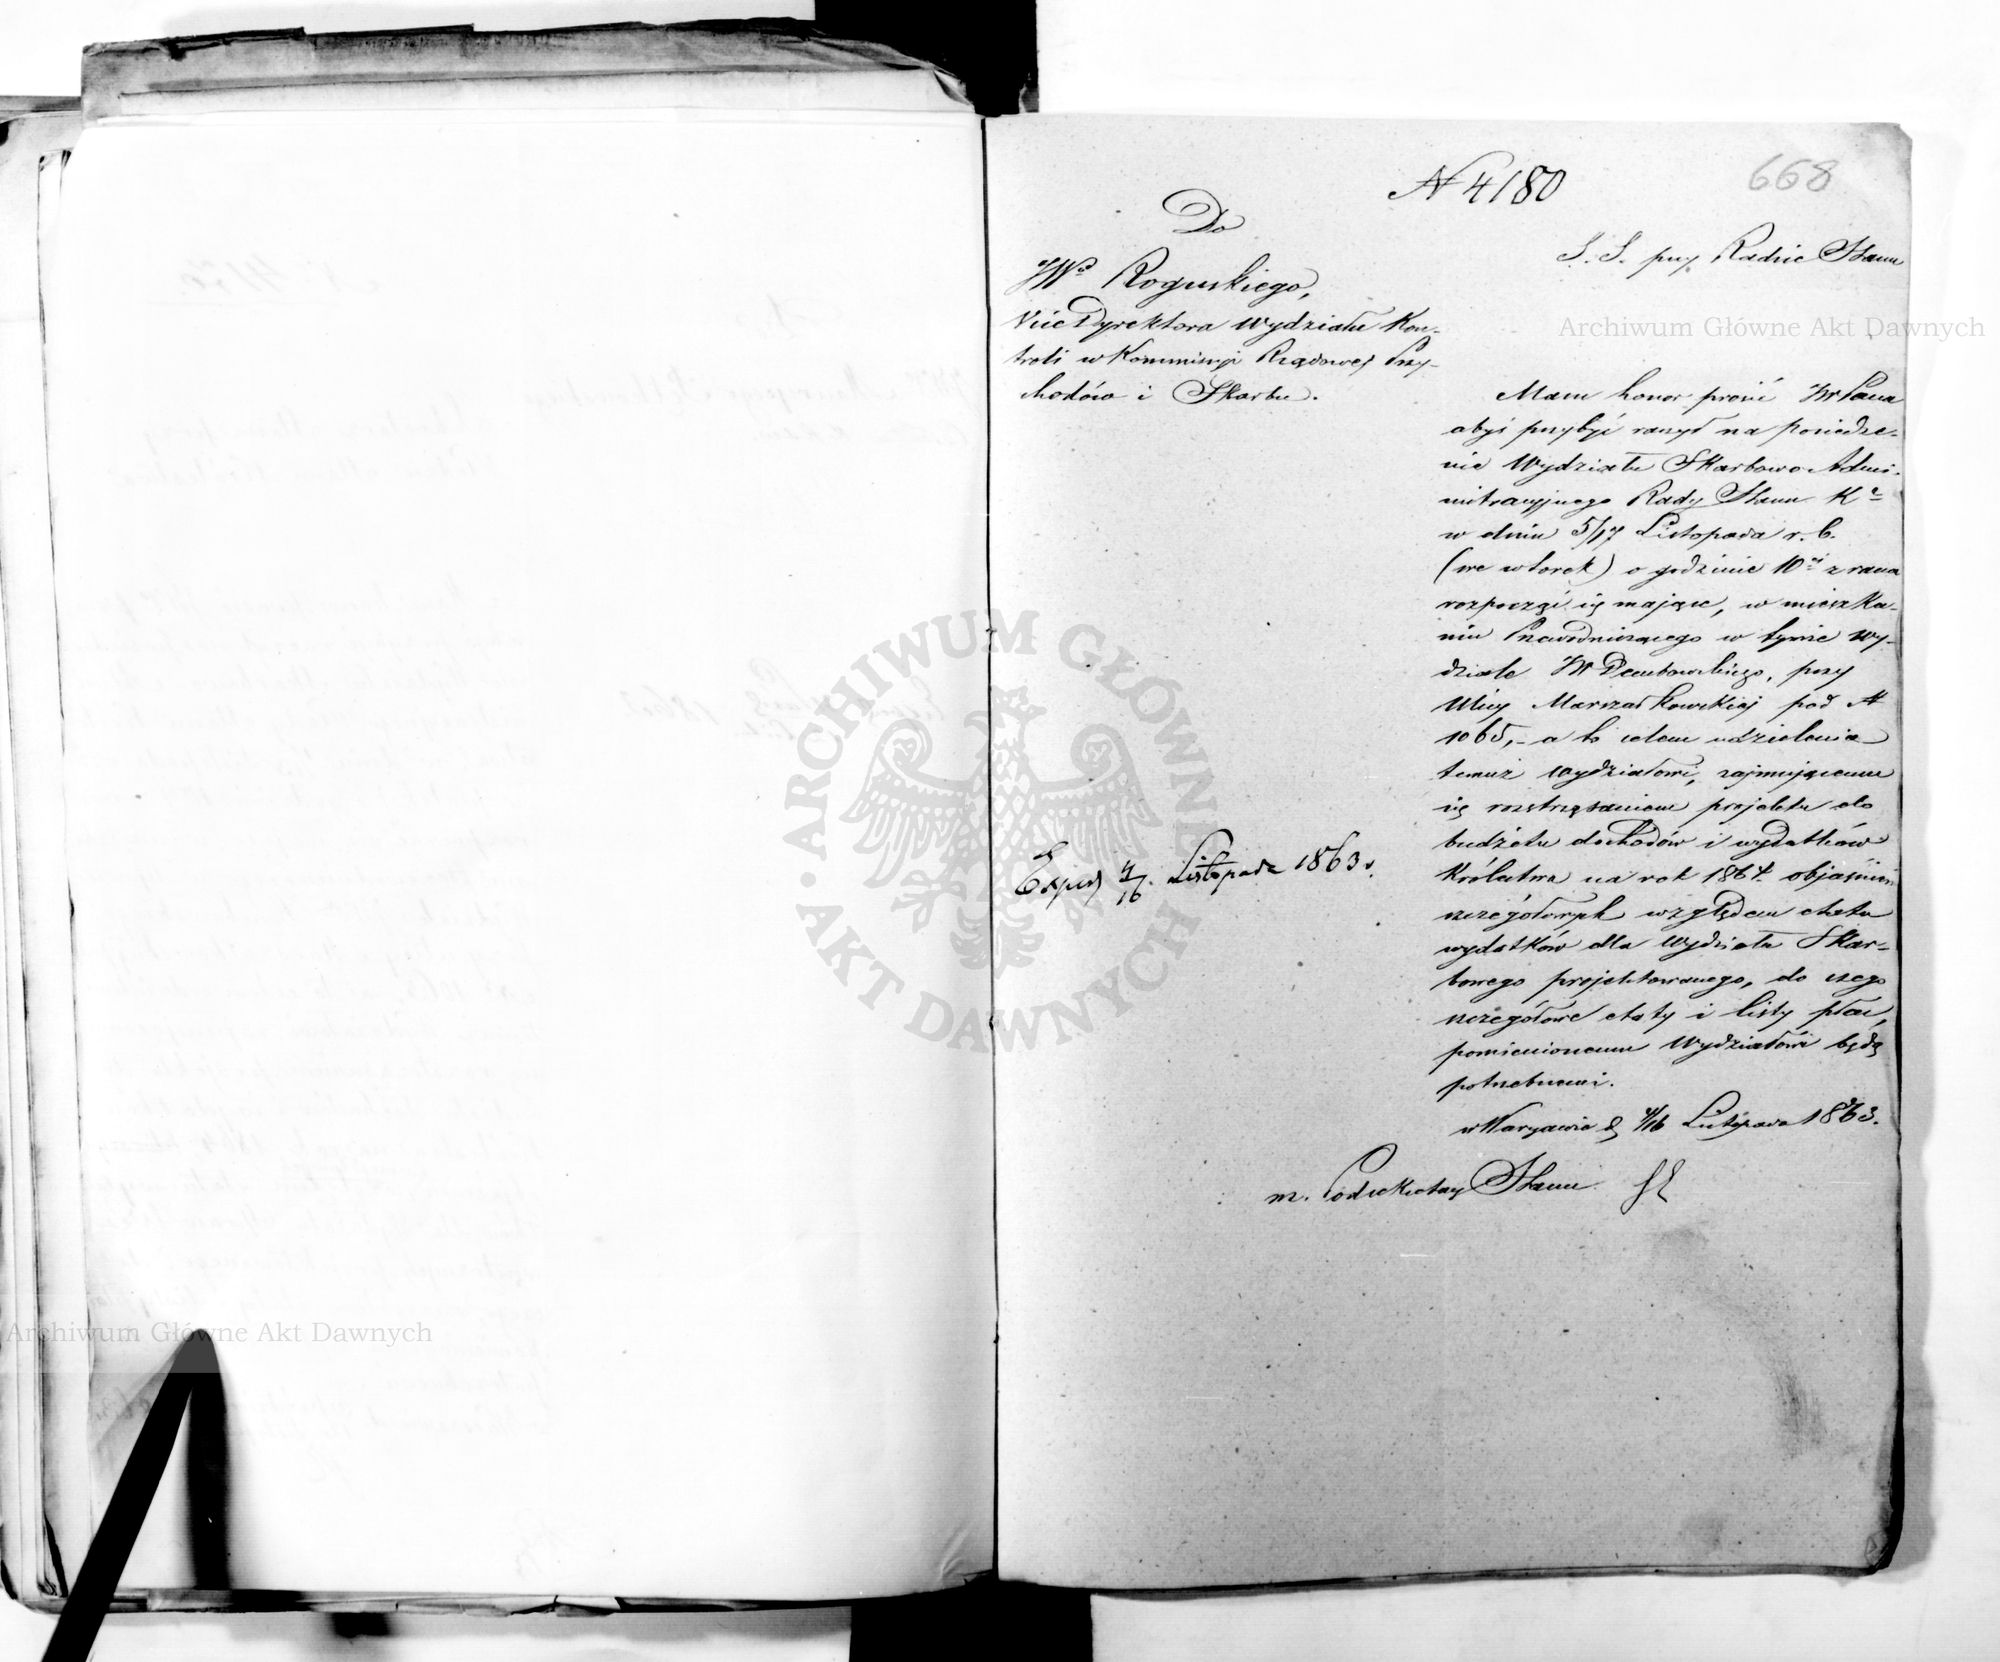 N 4180
668
Do
JWo Roguskiego,
Vice Dyrektora Wydziału Kon-
troli w Kommissyi Rządowej Przy-
chodów i Skarbu.
S. S. przy Radzie Stanu
Mam honor prosić JWPana
abyś przybyć raczył na posiedze-
nie Wydziału Skarbowo-Admi-
nistracyjnego Rady Stanu
w dniu 5/17 Listopada r. b.
(we wtorek) o godzinie 10ej z rana
rozpocząć się mające, w mieszka-
niu Przewodniczącego w tymże wy-
dziale JW Dembowskiego, przy
Ulicy Marszałkowskiej pod N
1065,- a to celem udzielenia
temuż wydziałowi, zajmującemu
się roztrząsaniem projektu do
budżetu dochodów i wydatków
Królestwa na rok 1864. objaśnień
szczegółowych względem etatu
wydatków dla Wydziału Skar-
bowego projektowanego, do czego
szczegółowe etaty i listy płac,
pomienionemu Wydziałowi będą
potrzebnemi.
w Warszawie d. 4/16 Listopada 1863.
Exped 4/16. Listopada 1863 r.
m. Podsekretarz Stanu
Archiwum Główne Akt Dawnych
Archiwum Główne Akt Dawnych
· ARCHIWUM GŁÓWNE · AKT DAWNYCH